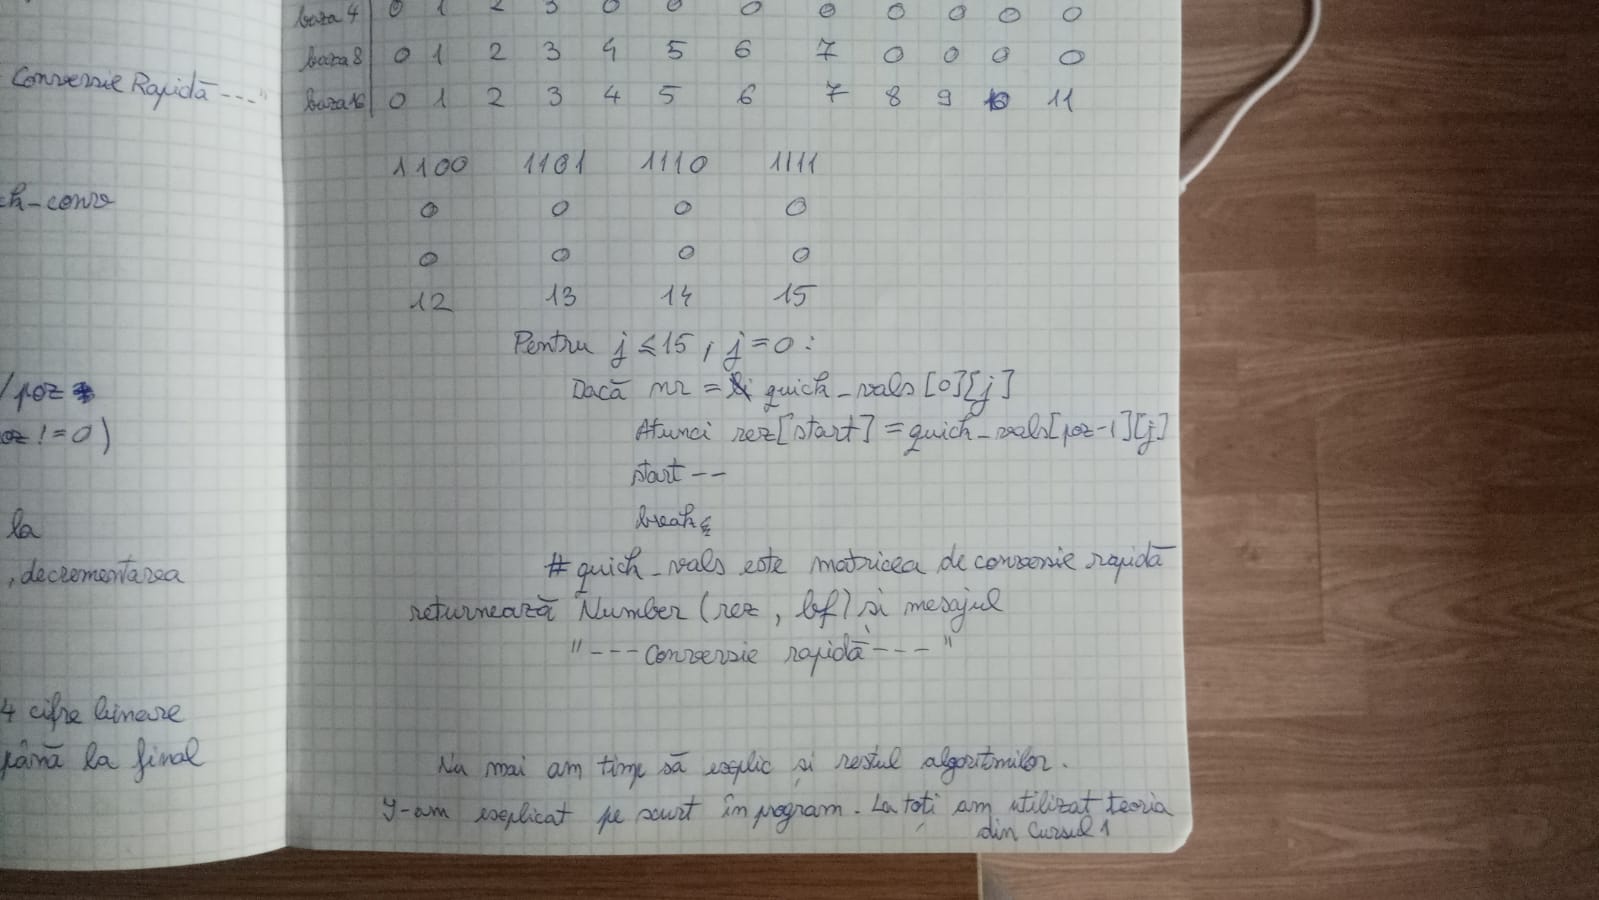 Conversie Rapidă ---"
ck-conv
/poz
oz != 0)
la
, decrementarea
4 cifre binare
până la final
baza 4 0 1 2 3 0 0 0 0 0 0 0 0
baza 8 0 1 2 3 4 5 6 7 0 0 0 0
baza 16 0 1 2 3 4 5 6 7 8 9 10 11
1100 1101 1110 1111
0 0 0 0
0 0 0 0
12 13 14 15
Pentru j ≤ 15, j = 0 :
Dacă nr = quick_vals [0][j]
Atunci rez[start] = quick_vals[poz-1][j]
start --
break
# quick_vals este matricea de conversie rapidă
returnează Number (rez, bf) și mesajul
"--- Conversie rapidă --- "
Nu mai am timp să explic și restul algoritmilor.
I-am explicat pe scurt în program. La toți am utilizat teoria
din Cursul 1